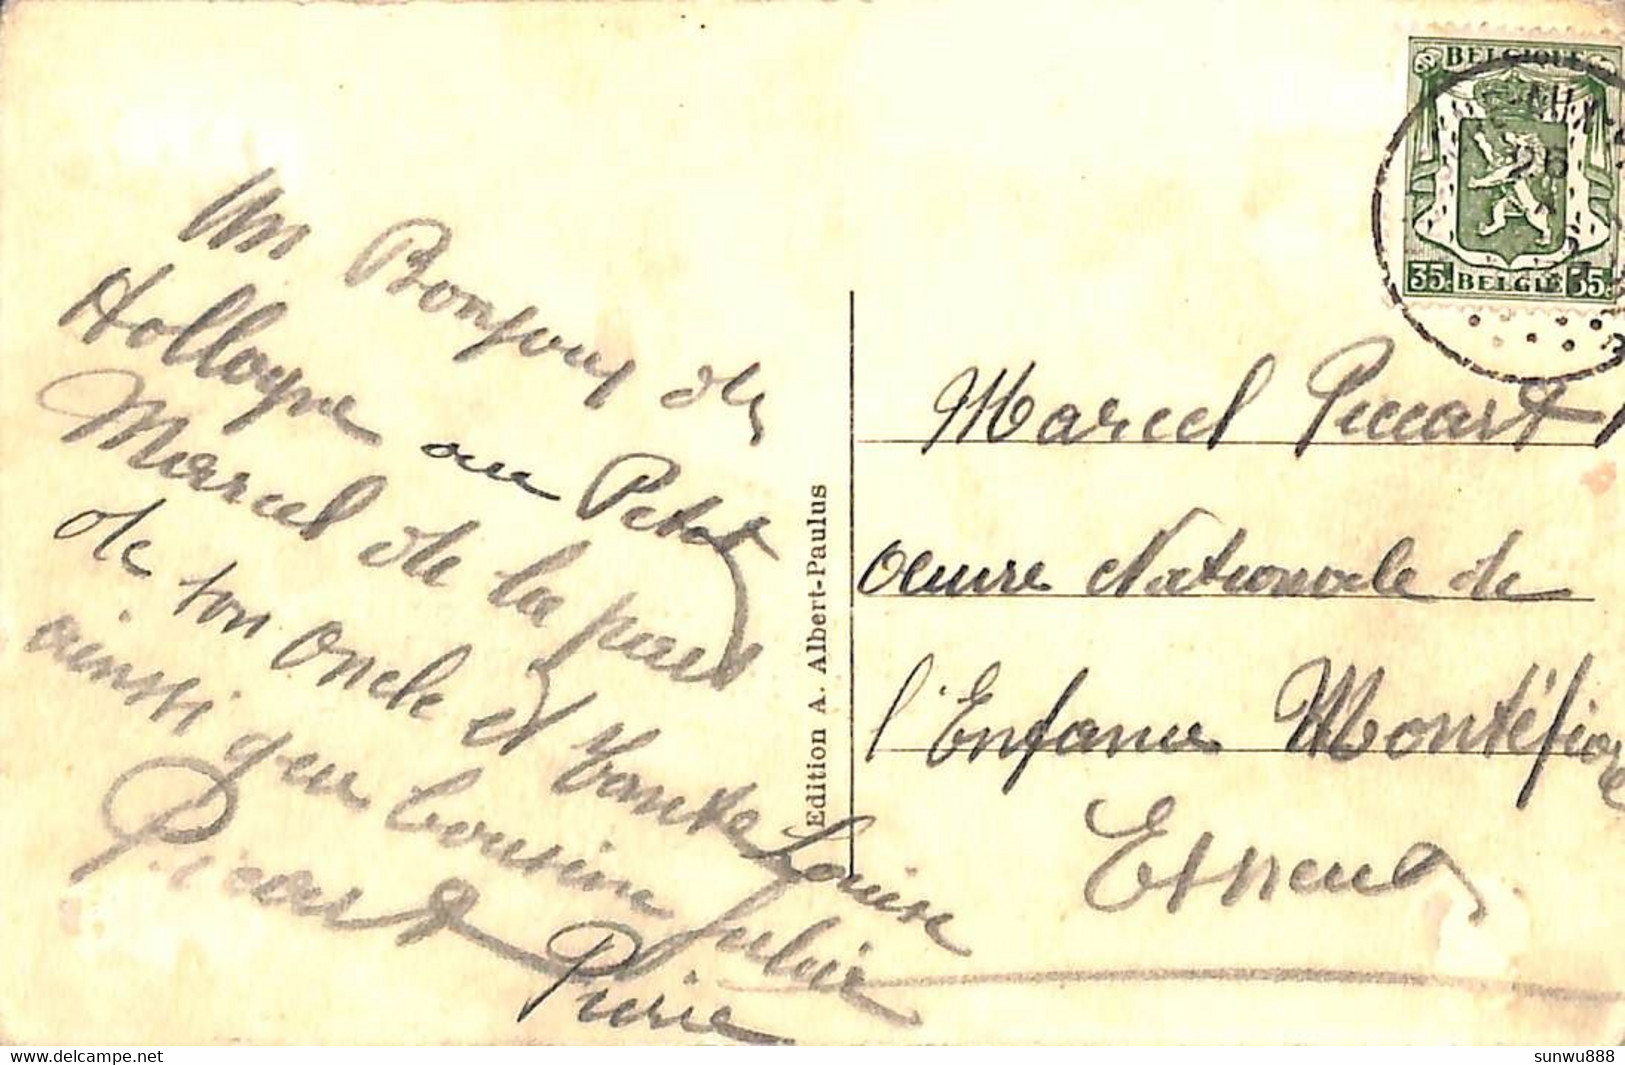 Un Bonjour de
Hollogne au Petit
Marcel de la part
de ton oncle et tante Louise
ainsi que cousine Julia
Picart Pierre
Edition A. Albert-Paulus
BELGIQUE
26
35c BELGIË 35c
Marcel Piccart
Oeuvre Nationale de
l'Enfance Montéfiore
Esneux
delcampe.net
sunwu888